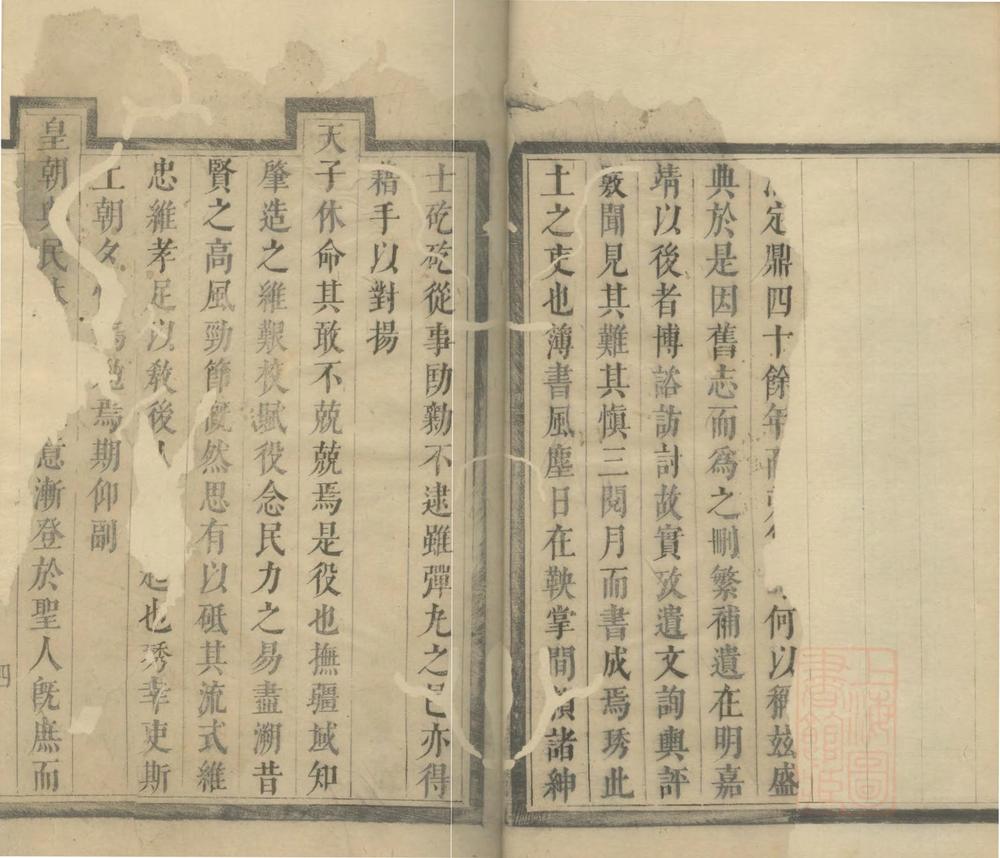 定鼎四十餘年而 何以稱茲盛
典於是因舊志而為之刪繁補遺在明嘉
靖以後者博諮訪討故實攷遺文詢輿評
覈聞見其難其慎三閱月而書成焉琇此
土之吏也簿書風塵日在鞅掌間 諸紳
士矻矻從事劻勷不逮雖彈丸之邑亦得
藉手以對揚
天子休命其敢不兢兢焉是役也撫疆域知
肇造之維艱校賦役念民力之易盡溯昔
賢之高風勁節慨然思有以砥其流式維
忠維孝足以教後 起也琇幸吏斯
土朝夕 焉期仰副
皇朝與民休 息漸登於聖人既庶而
四
上海圖書館藏